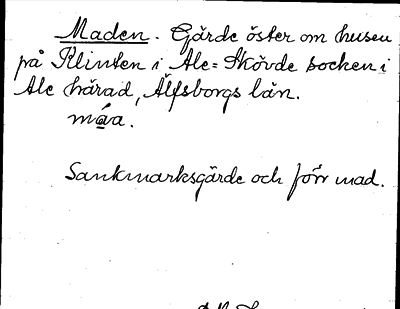 Maden. Gärde öster om husen
på Klinten i Ale=Skövde socken i
Ale härad, Älfsborgs län.
máa.
Sankmarksgärde och förr mad.